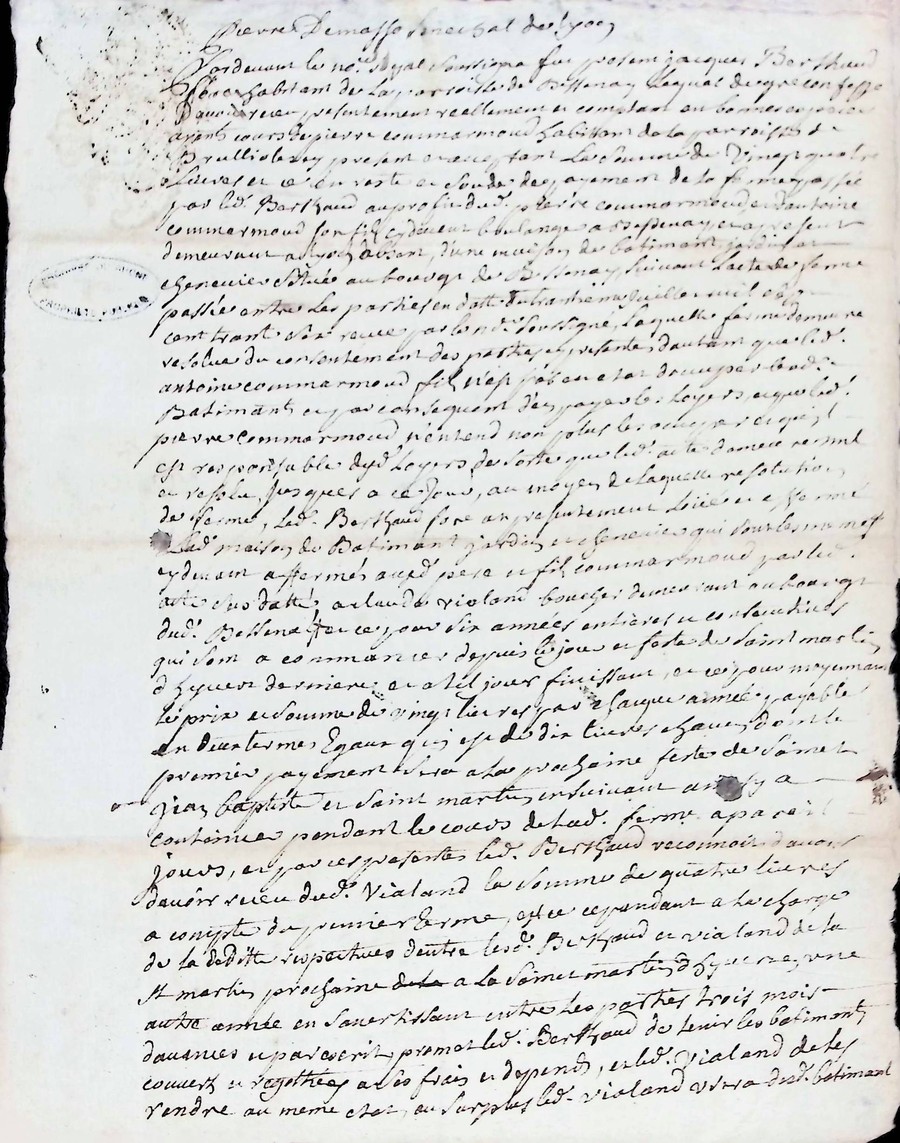 Pierre Demasso Senechal de lyon
Pardevant le no.re Royal soussigné fut present jacques Berthaud
habitant de la parroisse de Bessenay lequel de gre confesse
D'avoir receu presentement reellement et comptant en bonnes especes
ayant cours de pierre commarmond habittant de la parroisse de
Brulliole cy present et acceptant la somme de Vingt quatre
Livres et ce en reste et solde de payement de la ferme passée
par led. Berthaud au profit dud. pierre commarmond et d'antoine
commarmond son fils cydevant boulange a Bessenay et apresent
demeurant a lyon absent, d'une maison de batiment jardin et
chenevier située au bourgt de Bessenay suivant l'acte de ferme
passée entre les parties en datte du juillet mil sept
cent trant six receue par le no.re soussigné, laquelle ferme demeure
resolue du consentement des parties presentes d'autant que led.
antoine commarmond fils n'est pas en etat d'occuper lesd.
Batimants et par consequent d'en payer les loyers et que led.
pierre commarmond n'entend non plus les occuper et qu'il
est responsable desd. loyers de sorte que led. acte demeure
et resolu jusques a ce jour, au moyen de laquelle resolution
de ferme, led. Berthaud a presentement loüé et affermé
Lad. maison de Batimant jardin et chenevier qui sont les memes
cydevant affermés auxd. pere et fils commarmond par led.
acte sus datté, a claude vialand boucher demeurant au bourgt
dud. Bessenay et ce pour six années entieres et consecutives
qui sont a commancer depuis le jour et feste de saint martin
d'hyvert derniere et a tel jour finissant, et ce pour moyennant
le prix et somme de vingt livres par chacque année, payable
en deux termes Egaux qui est de dix livres chacun, dont le
premier payement sera a la prochaine feste de saint
jean baptiste et saint martin ensuivant ainsy a
continuer pendant le cours de lad. ferme a pareil
jours, et par ces presentes led. Berthaud reconnoit d'avoir
d'avoir receu dud. Vialand la somme de quatre livres
a compte du premier terme, et ce cependant a la charge
de la deditte respectives d'entre lesd. Berthaud et vialand de la
St martin prochaine a la saint martin d'hyver, une
autre année en s'avertissant entre les parties trois mois
d'avances et par ecrit, promet led. Berthaud de tenir les batiment
couvert et a ses frais et depends, et led. Vialand de les
rendre au meme etat, au surplus led. vialand usera dud. batiment